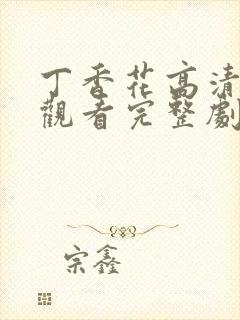 丁香花高清
觀看完整劇
宗鑫